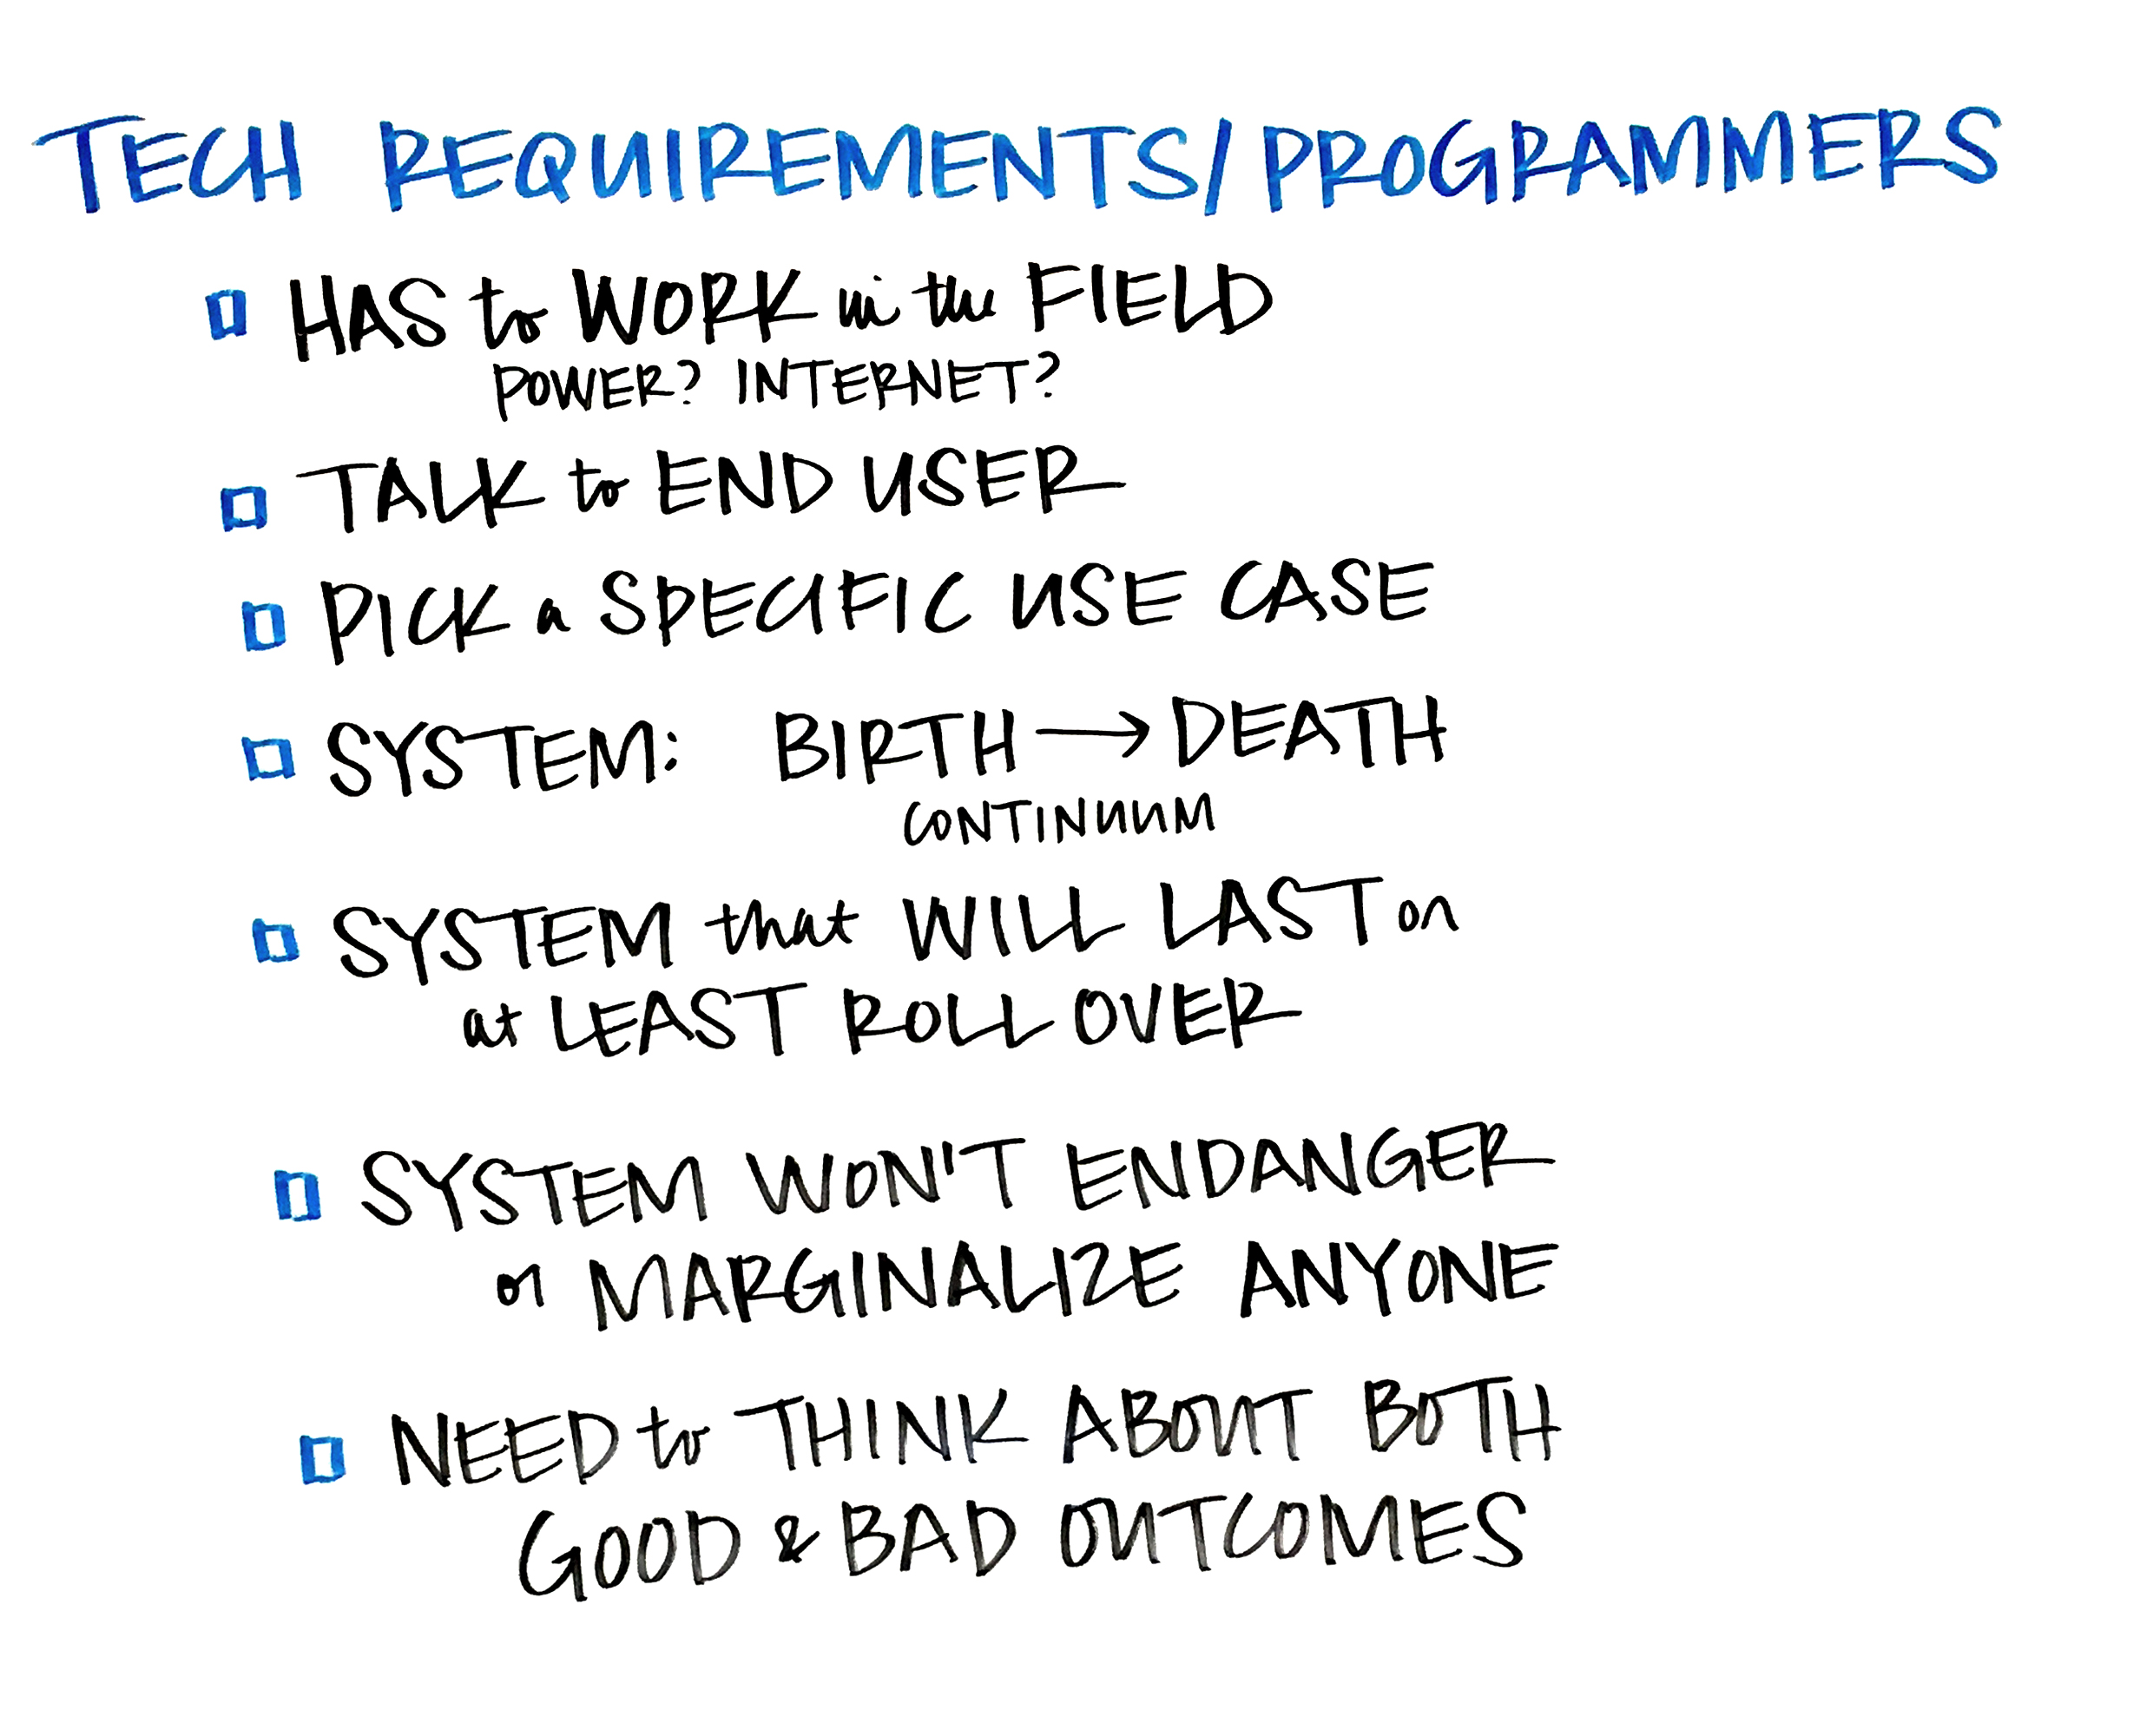 TECH REQUIREMENTS/PROGRAMMERS
HAS to WORK in the FIELD
POWER? INTERNET?
TALK to END USER
PICK a SPECIFIC USE CASE
SYSTEM: BIRTH → DEATH
CONTINUUM
SYSTEM that WILL LAST or
at LEAST ROLL OVER
SYSTEM WON'T ENDANGER
or MARGINALIZE ANYONE
NEED to THINK ABOUT BOTH
GOOD & BAD OUTCOMES